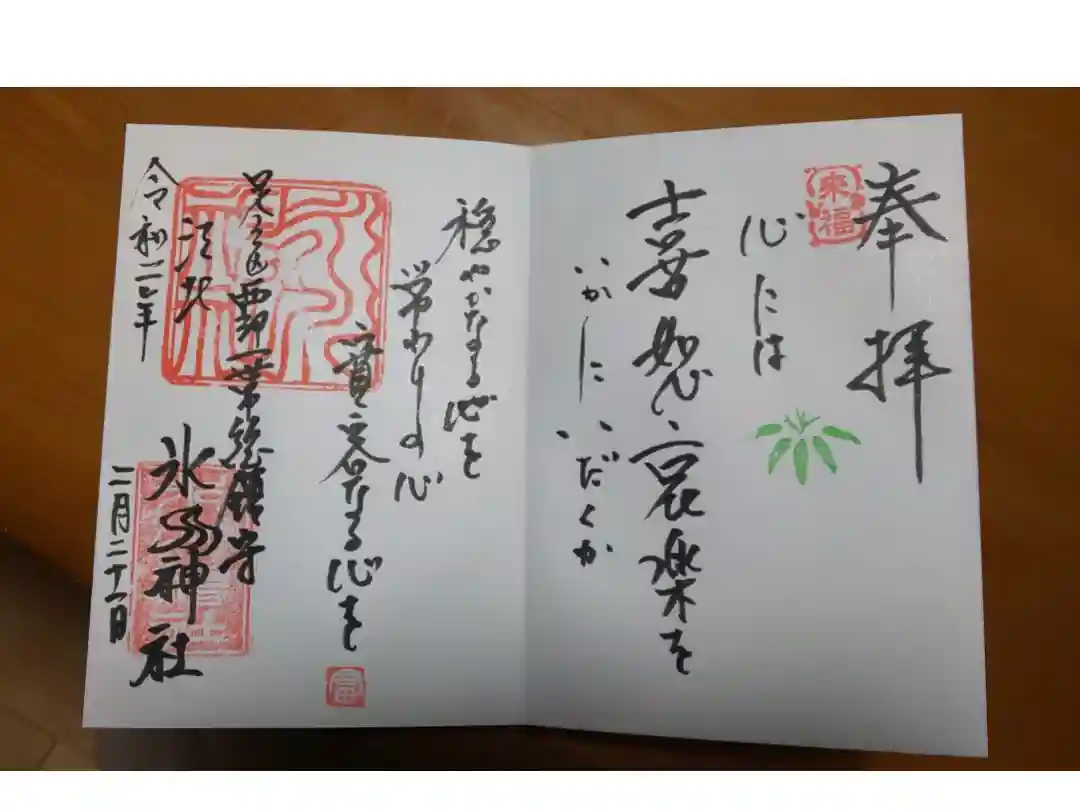 奉拝
來福
心には
喜怒哀楽を
いかにいだくか
穏やかなる心を
常わりの心
寛容なる心を
足立区西部一帯総鎮守
江北
氷川神社
令和二年
二月二十一日